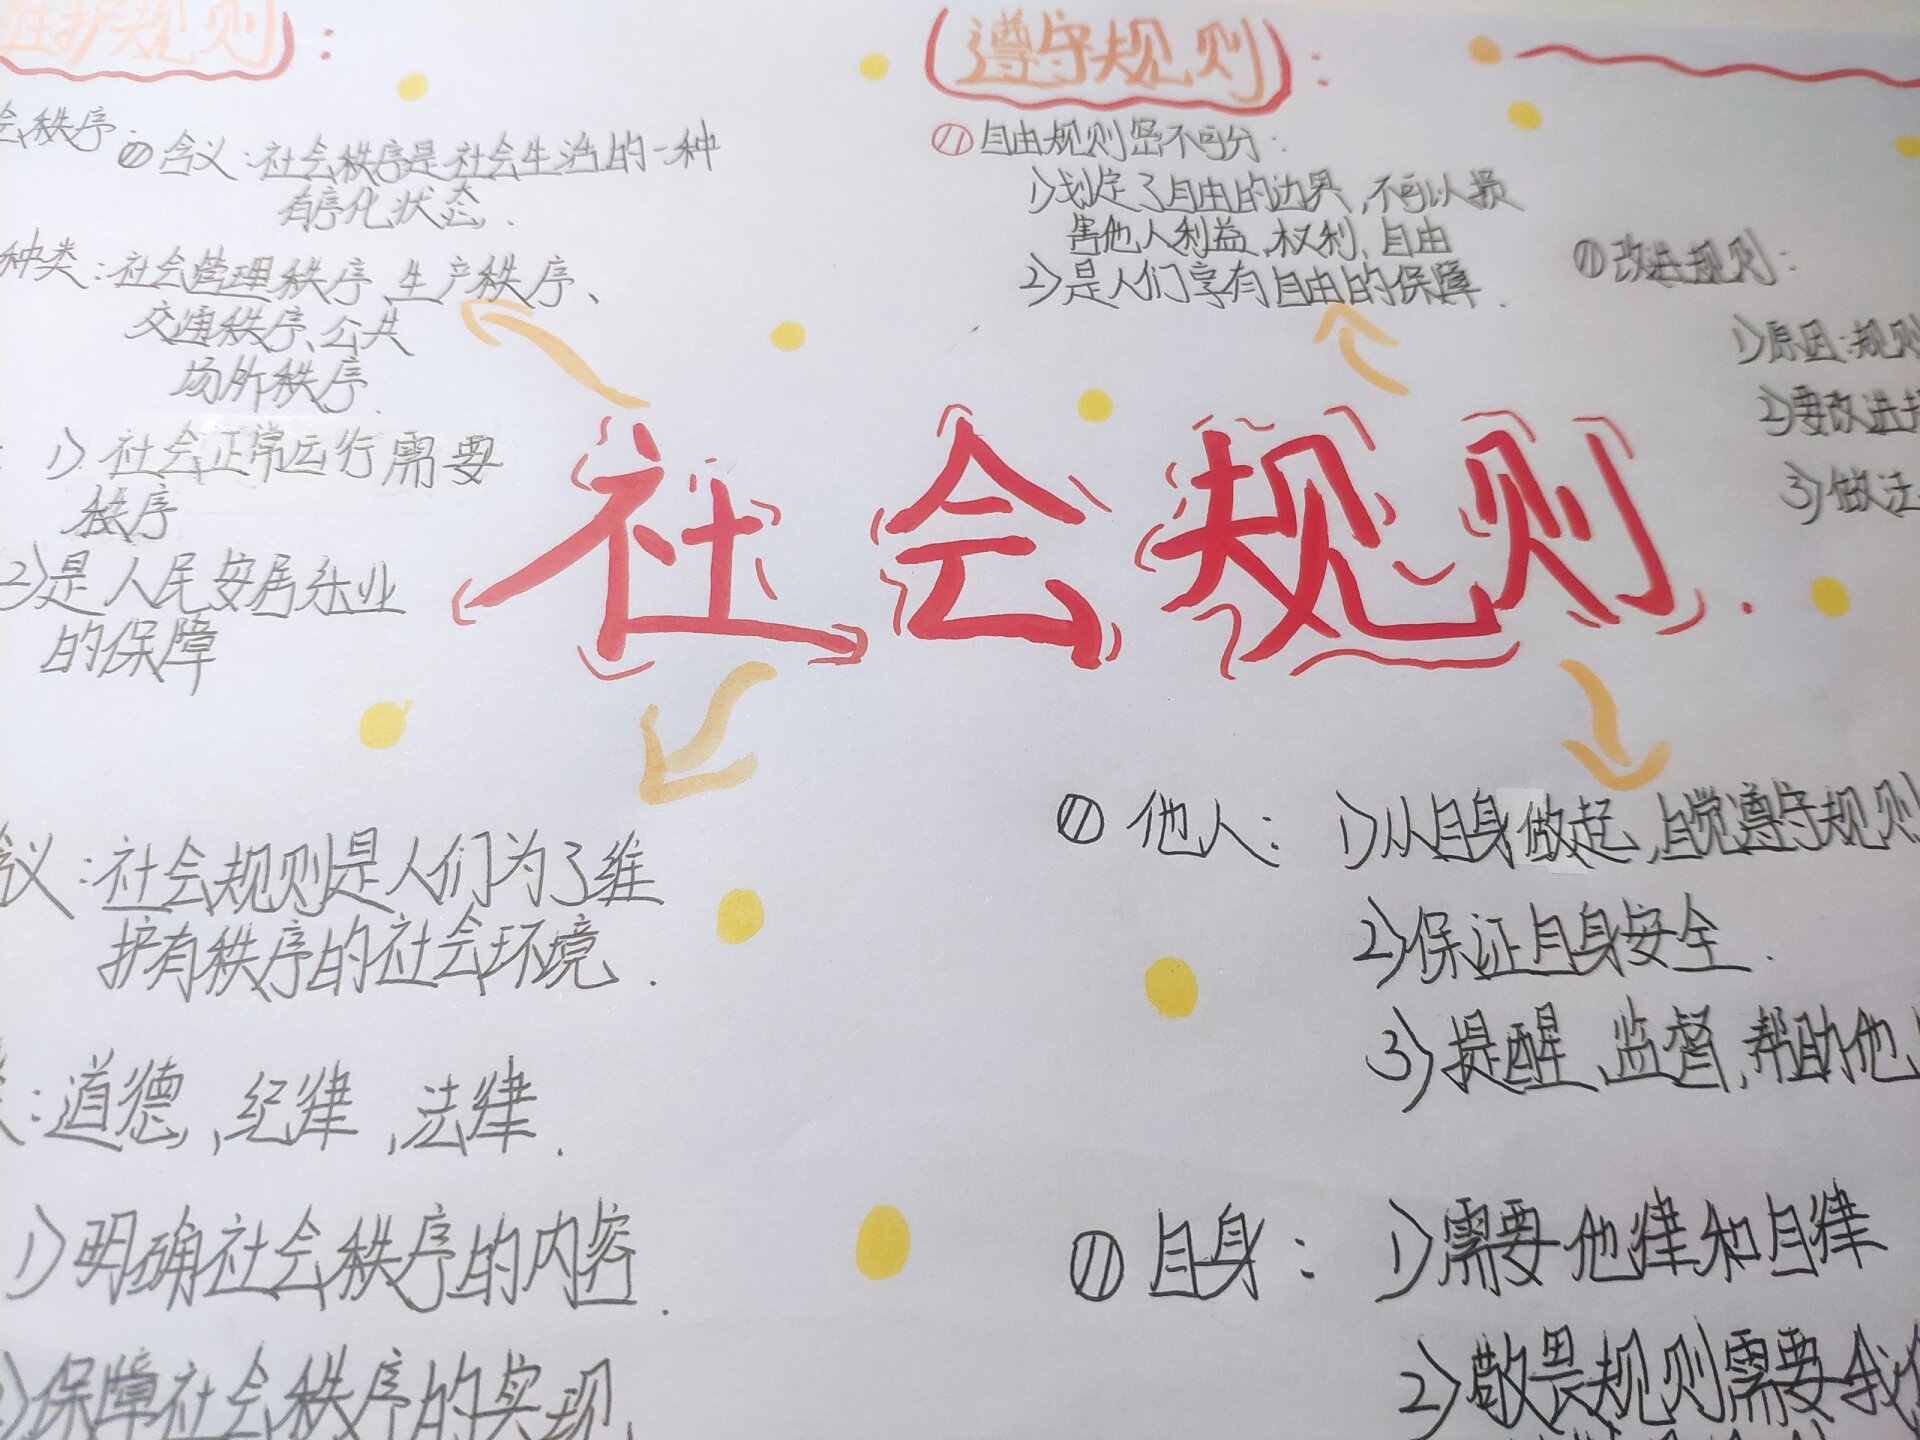 维护规则：
会秩序：
含义：社会秩序是社会生活的一种
有序化状态.
种类：社会管理秩序、生产秩序、
交通秩序、公共
场所秩序.
1）社会正常运行需要
秩序
2）是人民安居乐业
的保障
遵守规则：
自由规则密不可分：
1）划定了自由的边界，不可以损
害他人利益、权利，自由
2）是人们享有自由的保障.
改进规则：
1）原因：规则
2）要改进
3）做法
社会规则.
含义：社会规则是人们为了维
护有秩序的社会环境.
：道德，纪律，法律.
1）明确社会秩序的内容.
）保障社会秩序的实现.
他人：1）从自身做起，自觉遵守规则
2）保证自身安全.
3）提醒、监督，帮助他
自身：1）需要他律和自律
2）敬畏规则需要我